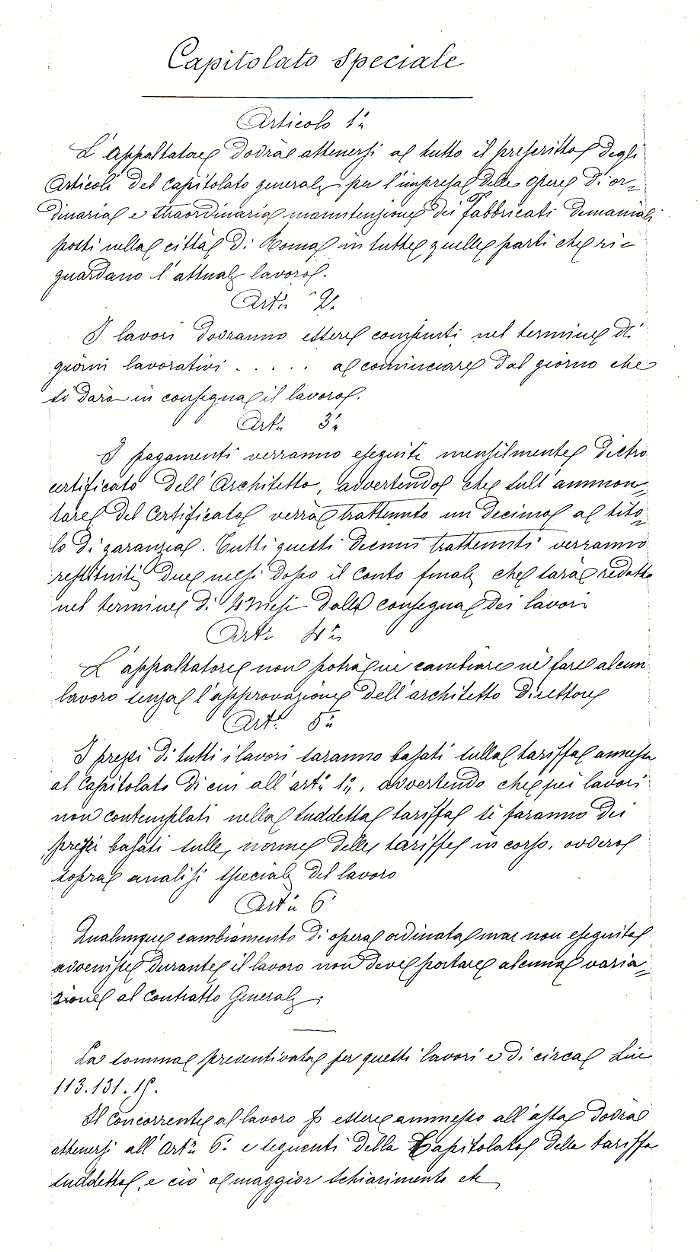 Capitolato speciale
Articolo 1º
L'Appaltatore dovrà attenersi a tutto il prescritto degli
Articoli del capitolato generale per l'impresa delle opere di or=
dinaria e straordinaria manutenzione dei fabbricati demaniali
posti nella città di Roma in tutte quelle parti che ri=
guardano l'attuale lavoro.
Artº 2º
I lavori dovranno essere compiuti nel termine di
giorni lavorativi ..... a cominciare dal giorno che
si darà in consegna il lavoro.
Artº 3º
I pagamenti verranno eseguiti mensilmente dietro
certificato dell'Architetto, avvertendo che sull'ammon=
tare del certificato verrà trattenuto un decimo a tito=
lo di garanzia. Tutti questi decimi trattenuti verranno
restituiti due mesi dopo il conto finale che sarà redatto
nel termine di 4 mesi dalla consegna dei lavori
Artº 4º
L'appaltatore non potrà nè cambiare nè fare alcun
lavoro senza l'approvazione dell'architetto Direttore
Artº 5º
I prezzi di tutti i lavori saranno basati sulla tariffa annessa
al capitolato di cui all'artº 1º, avvertendo che pei lavori
non contemplati nella suddetta tariffa si faranno dei
prezzi basati sulle norme delle tariffe in corso, ovvero
sopra analisi speciale del lavoro
Artº 6º
Qualunque cambiamento di opera ordinata ma non eseguita
avvenisse durante il lavoro non deve portare alcuna varia=
zione al contratto Generale.
La somma preventivata per questi lavori e di circa Lire
113.131.15.
Il concorrente al lavoro p essere ammesso all'asta dovrà
attenersi all'Artº 6º e seguenti della Capitolato delle tariffa
suddetta, e ciò a maggior schiarimento etc